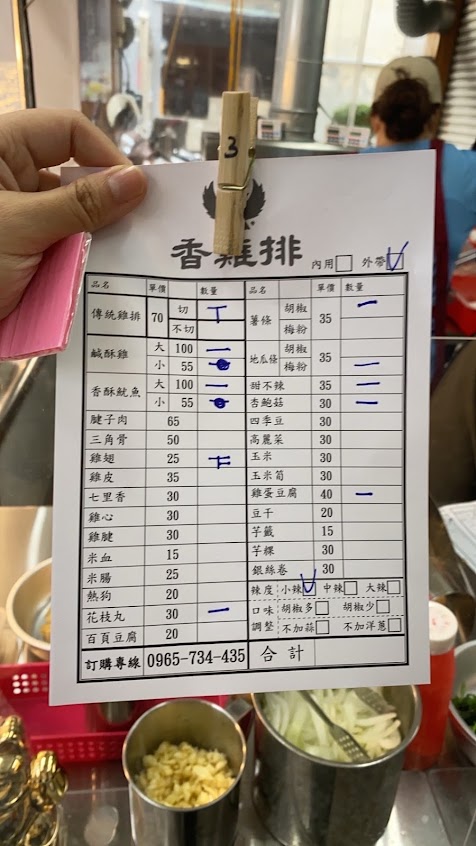 3
香雞排
內用□ 外帶☑
品名 單價 數量 品名 單價 數量
傳統雞排 70 切 丅 薯條 胡椒 35 一
不切 梅粉
鹹酥雞 大 100 一 地瓜條 胡椒 35
小 55 梅粉 一
香酥魷魚 大 100 一 甜不辣 35 一
小 55 杏鮑菇 30 一
腱子肉 65 四季豆 30
三角骨 50 高麗菜 30
雞翅 25 下 玉米 30
雞皮 35 玉米筍 30
七里香 30 雞蛋豆腐 40 一
雞心 30 豆干 20
雞腱 30 芋籤 15
米血 15 芋粿 30
米腸 25 銀絲卷 30
熱狗 20 辣度 小辣☑ 中辣□ 大辣□
花枝丸 30 一 口味調整 胡椒多□ 胡椒少□
百頁豆腐 20 不加蒜□ 不加洋蔥□
訂購專線 0965-734-435 合計